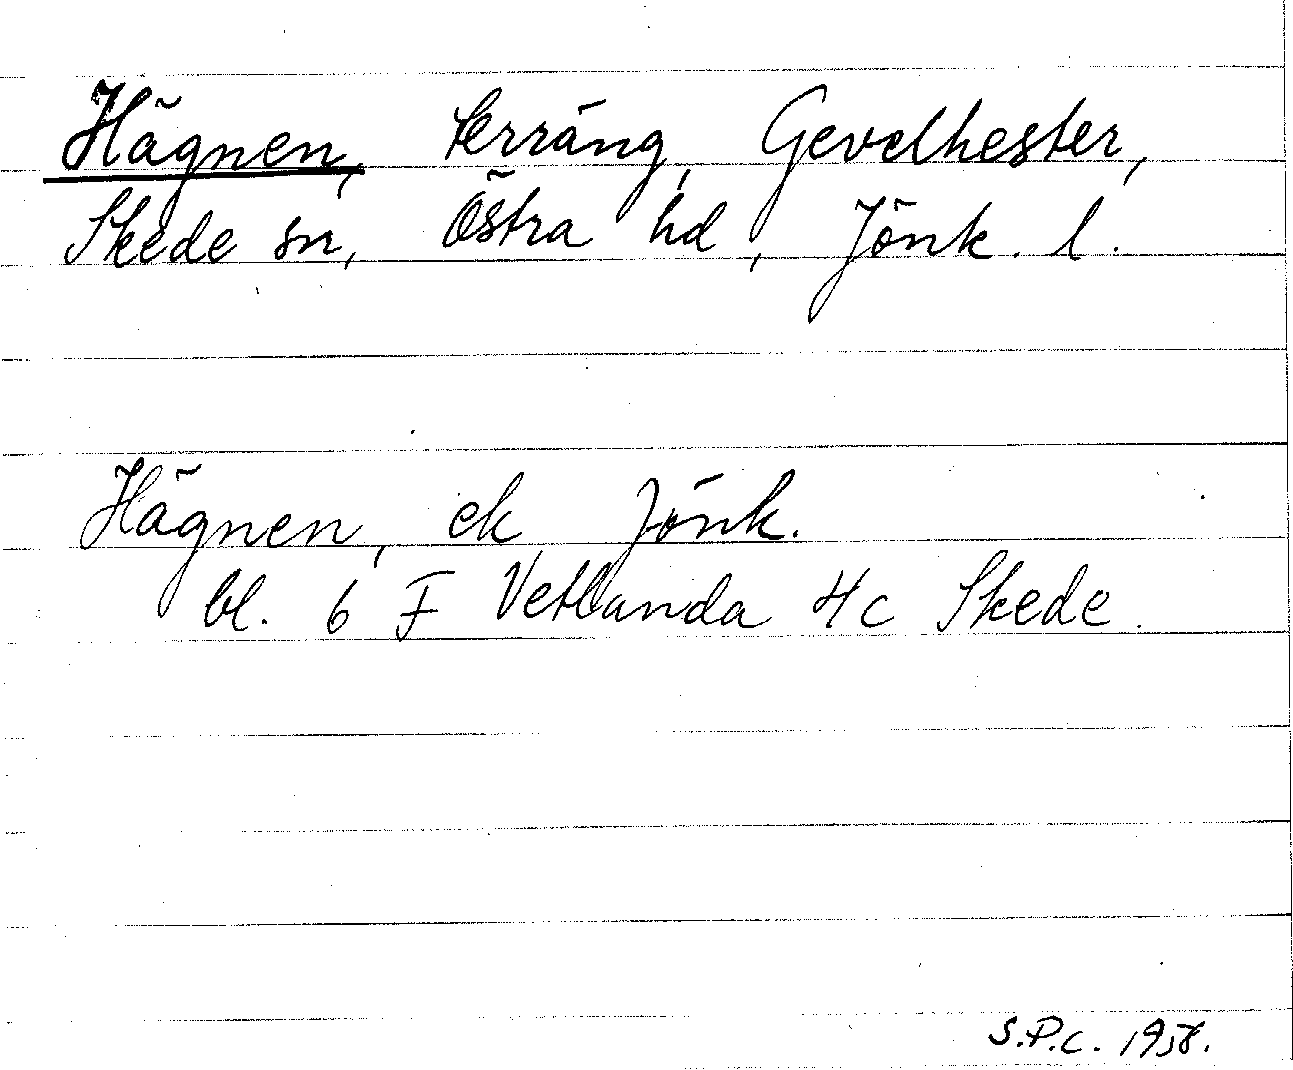 Hägnen, terräng, Gevelhester,
Skede sn, Östra hd, Jönk. l.
Hägnen, ek Jönk.
bl. 6 F Vetlanda 4c Skede.
S.P.C. 1958.